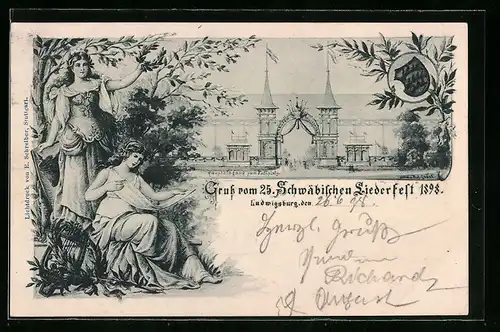 Lichtdruck von E. Schreiber, Stuttgart.
Haupteingang zum Festplatz
Gruß vom 25. Schwäbischen Liederfest 1898.
Ludwigsburg, den 26.6.98.
Herzl. Gruß
Richard
August